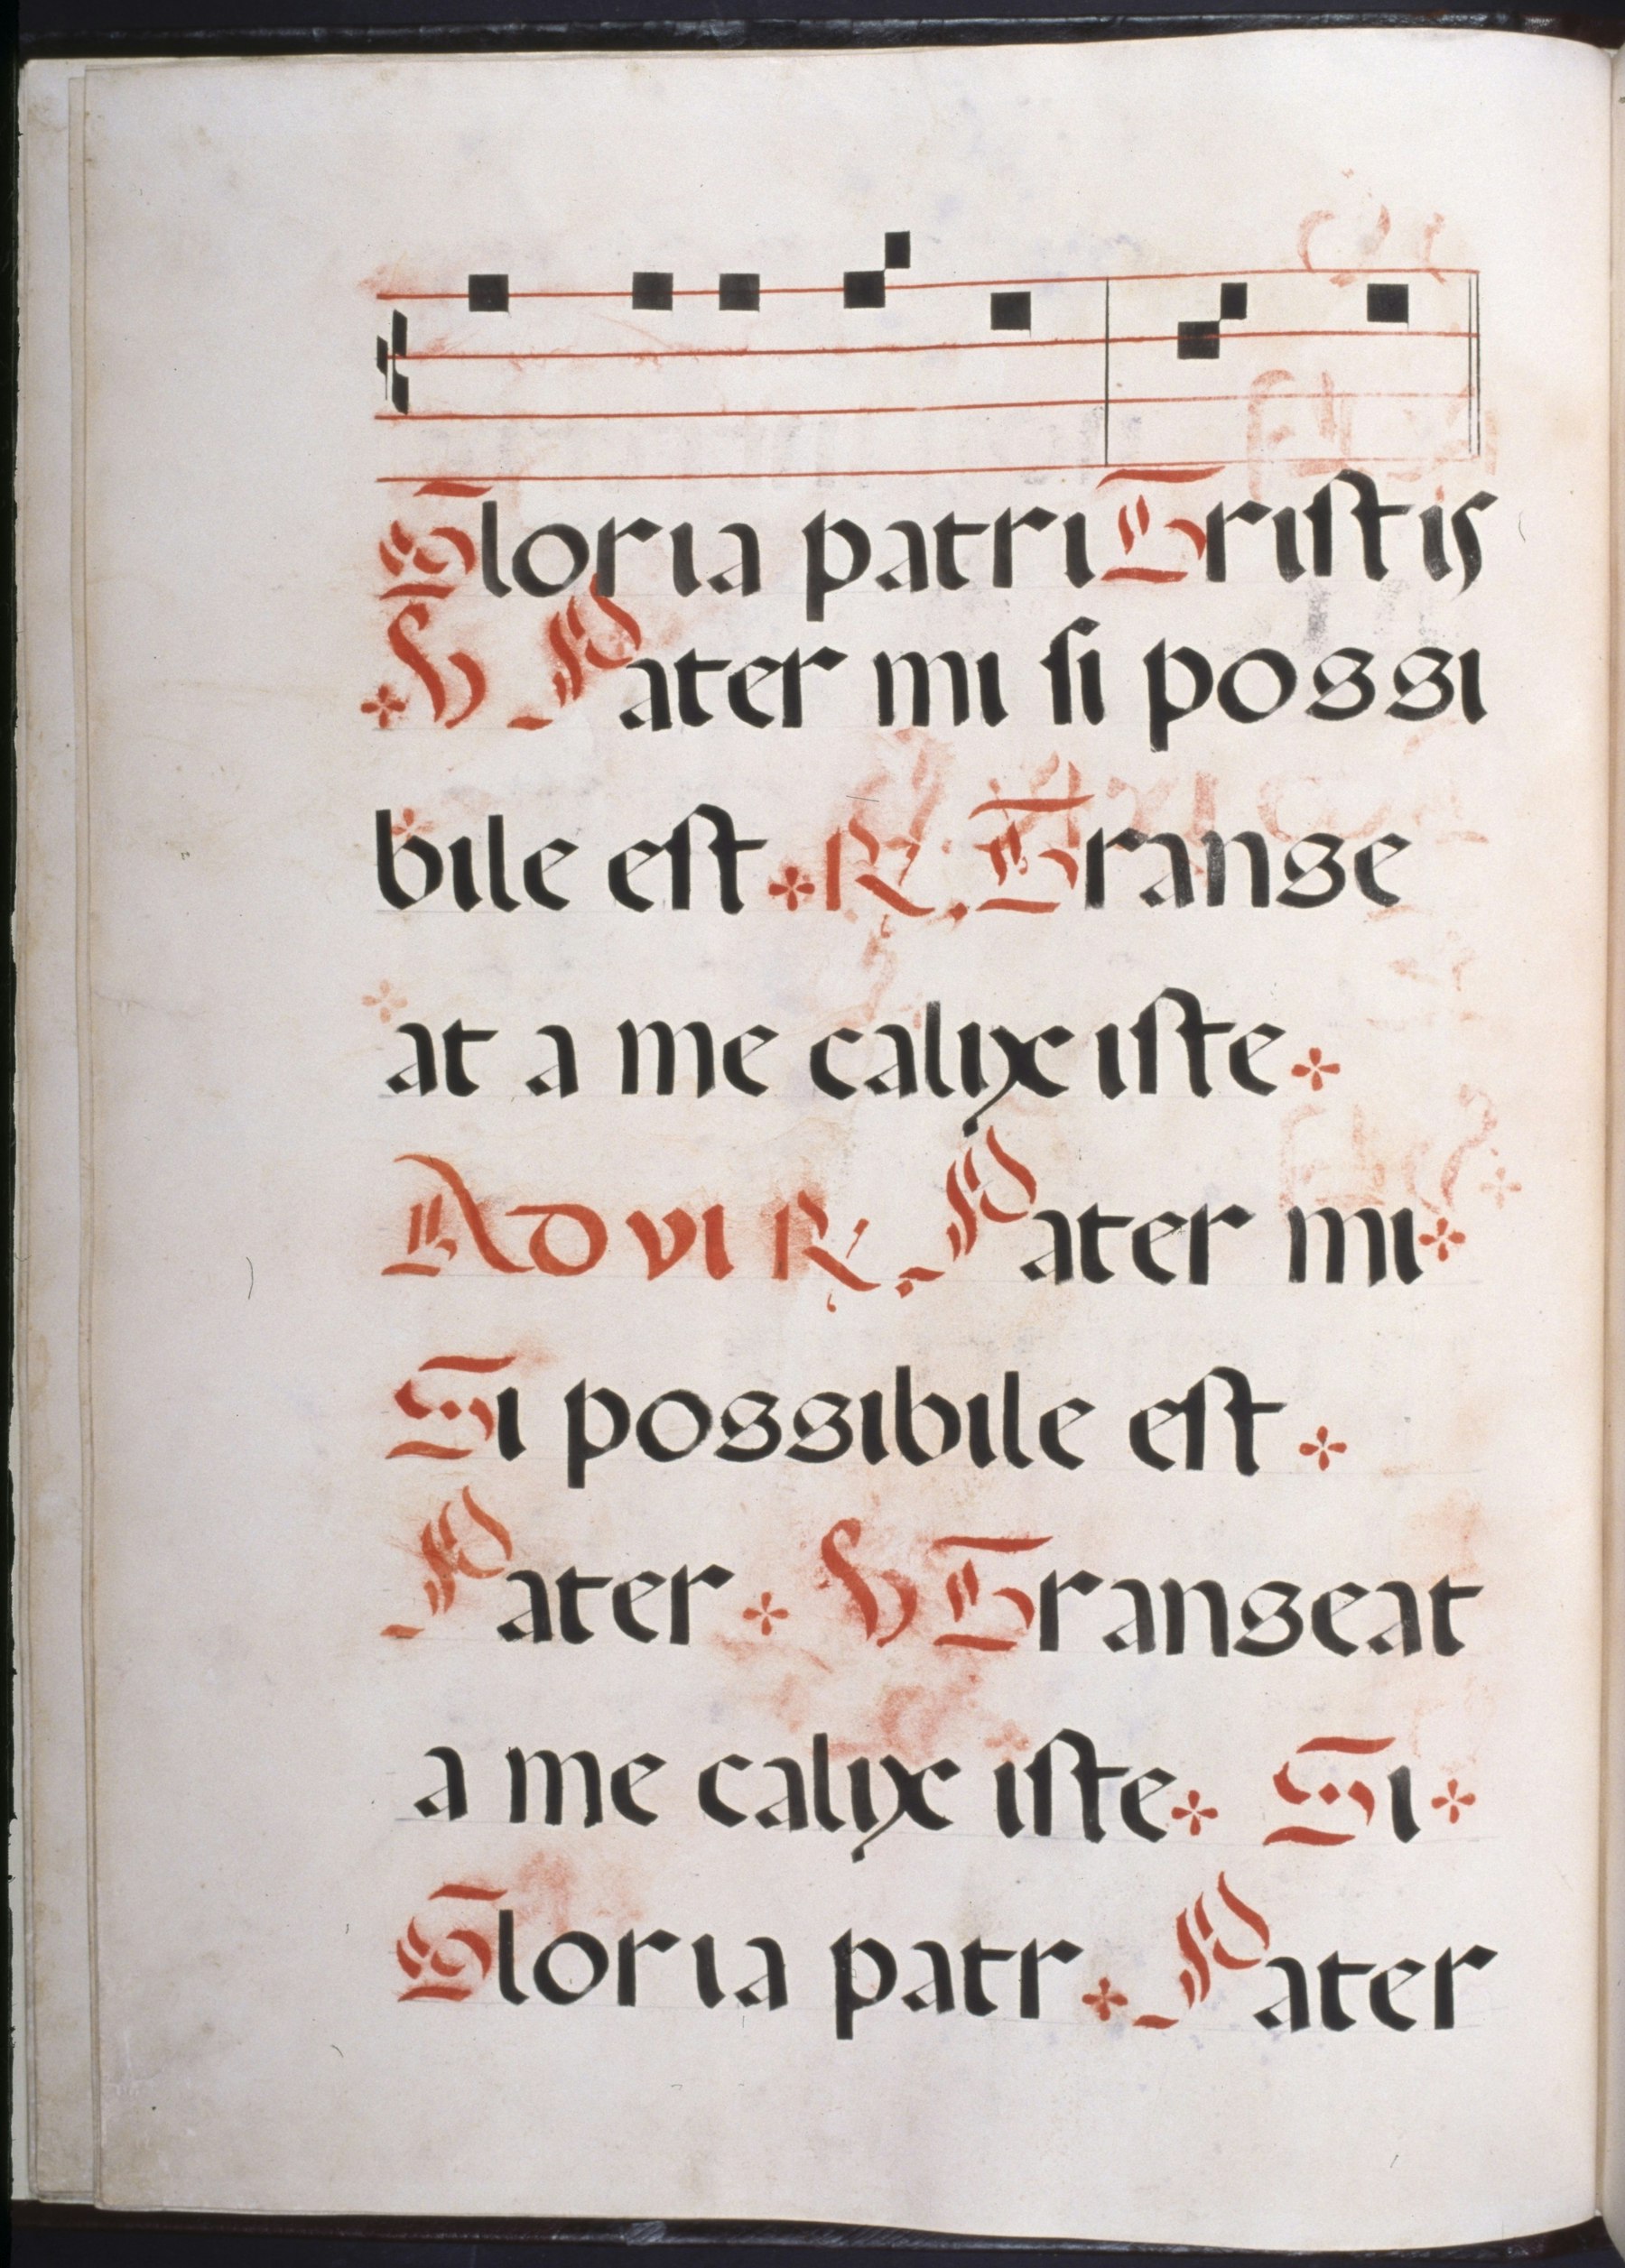 Gloria patri Tristis
℣ Pater mi si possi
bile est ℟. Transe
at a me calix iste
AD VI ℟. Pater mi
Si possibile est
Pater ℣ Transeat
a me calix iste Si
Gloria patr Pater